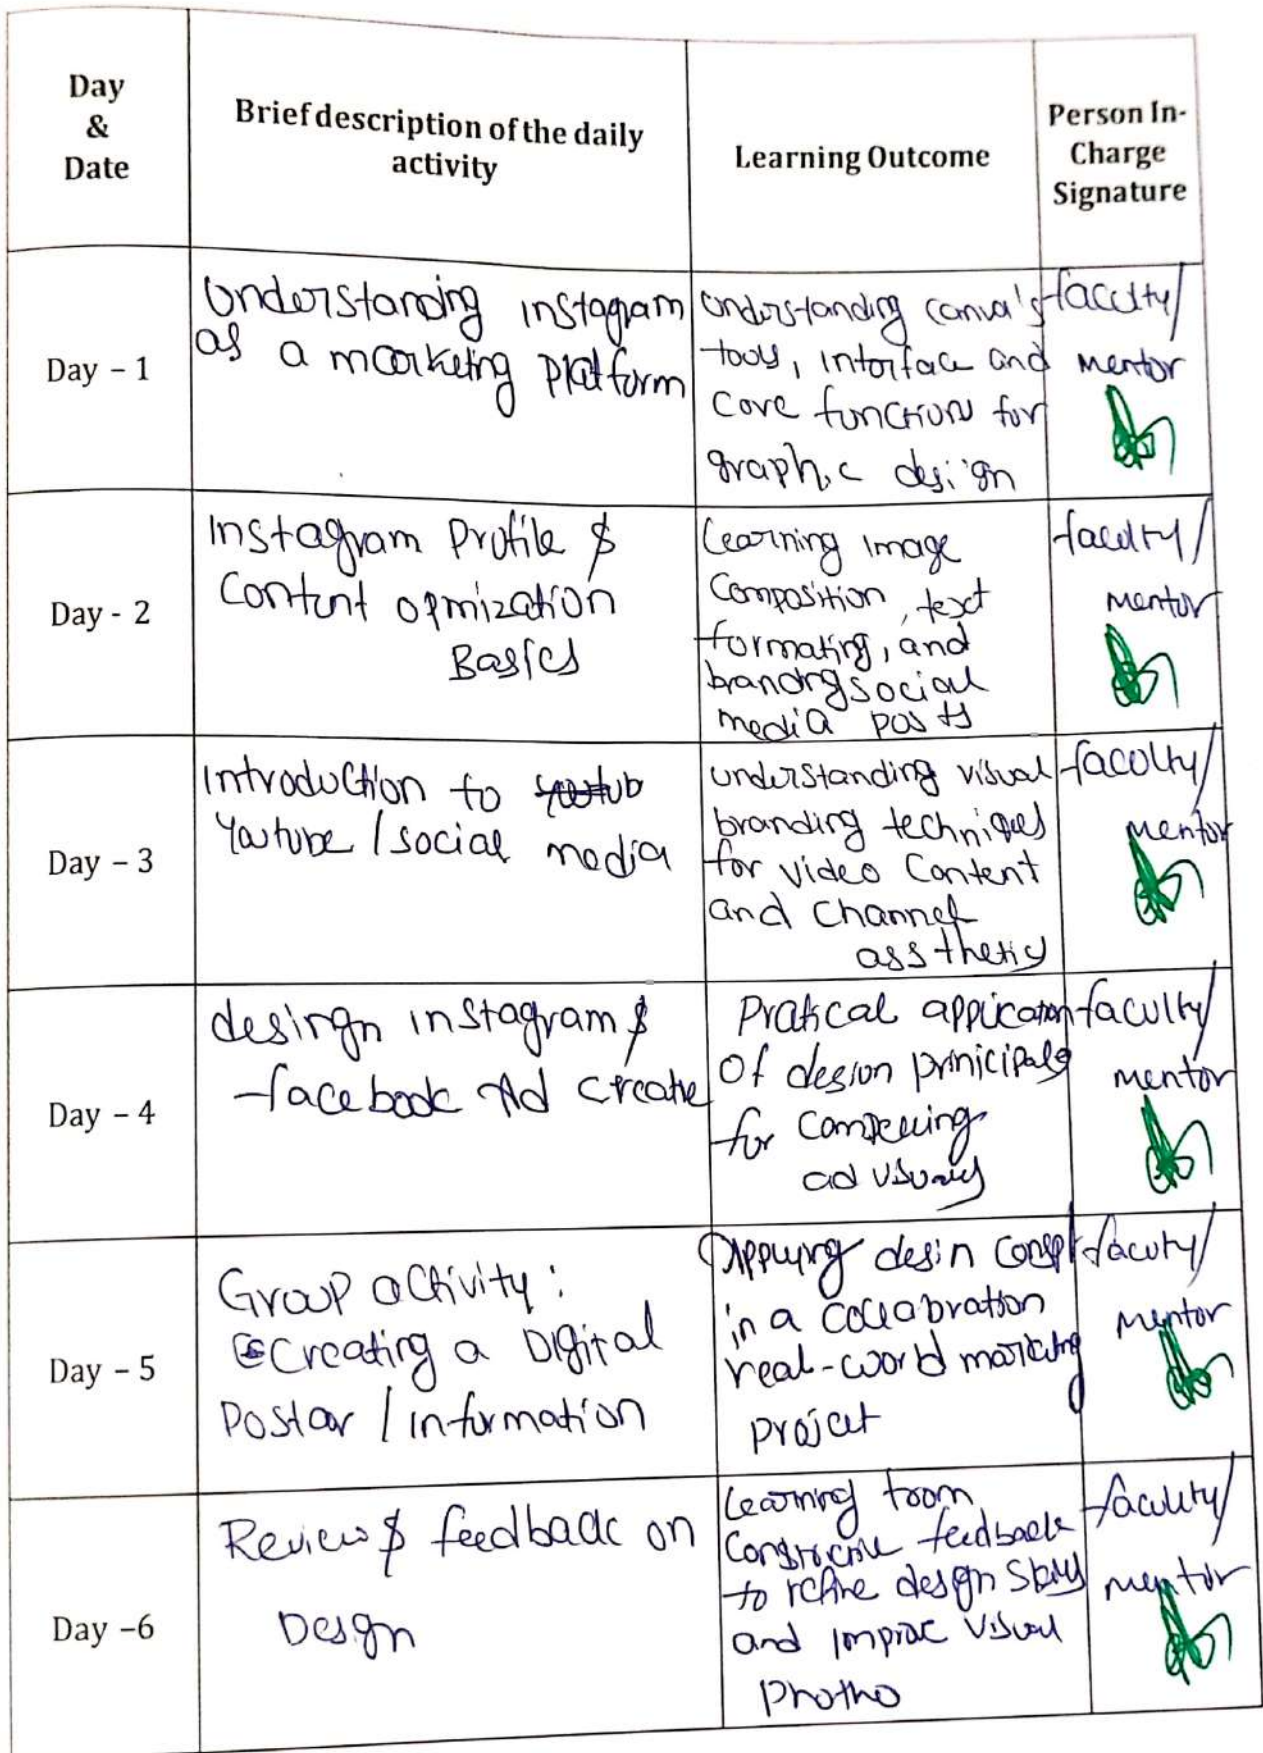 Day
&
Date
Brief description of the daily
activity
Learning Outcome
Person In-
Charge
Signature
Day - 1
Understanding instagram
as a marketing platform
Understanding canva's
tools, interface and
core functions for
graphic design
faculty/
mentor
Day - 2
Instagram Profile &
Content opmization
Basics
Learning image
Composition, text
formating, and
branding social
media posts
faculty/
mentor
Day - 3
introduction to
Youtube / social media
understanding visual
branding techniques
for video Content
and channel
assthetics
faculty/
mentor
Day - 4
desirgn instagram &
facebook Ad create
Pratical application
Of desion prinicipals
for compelling
ad visuals
faculty/
mentor
Day - 5
Group activity :
Creating a Digital
Postar / information
Applying desin
in a collabration
real-world marketing
project
faculty/
mentor
Day -6
Review & feedback on
Design
Learning from
feedback
to refine design skills
and visual
photho
faculty/
mentor